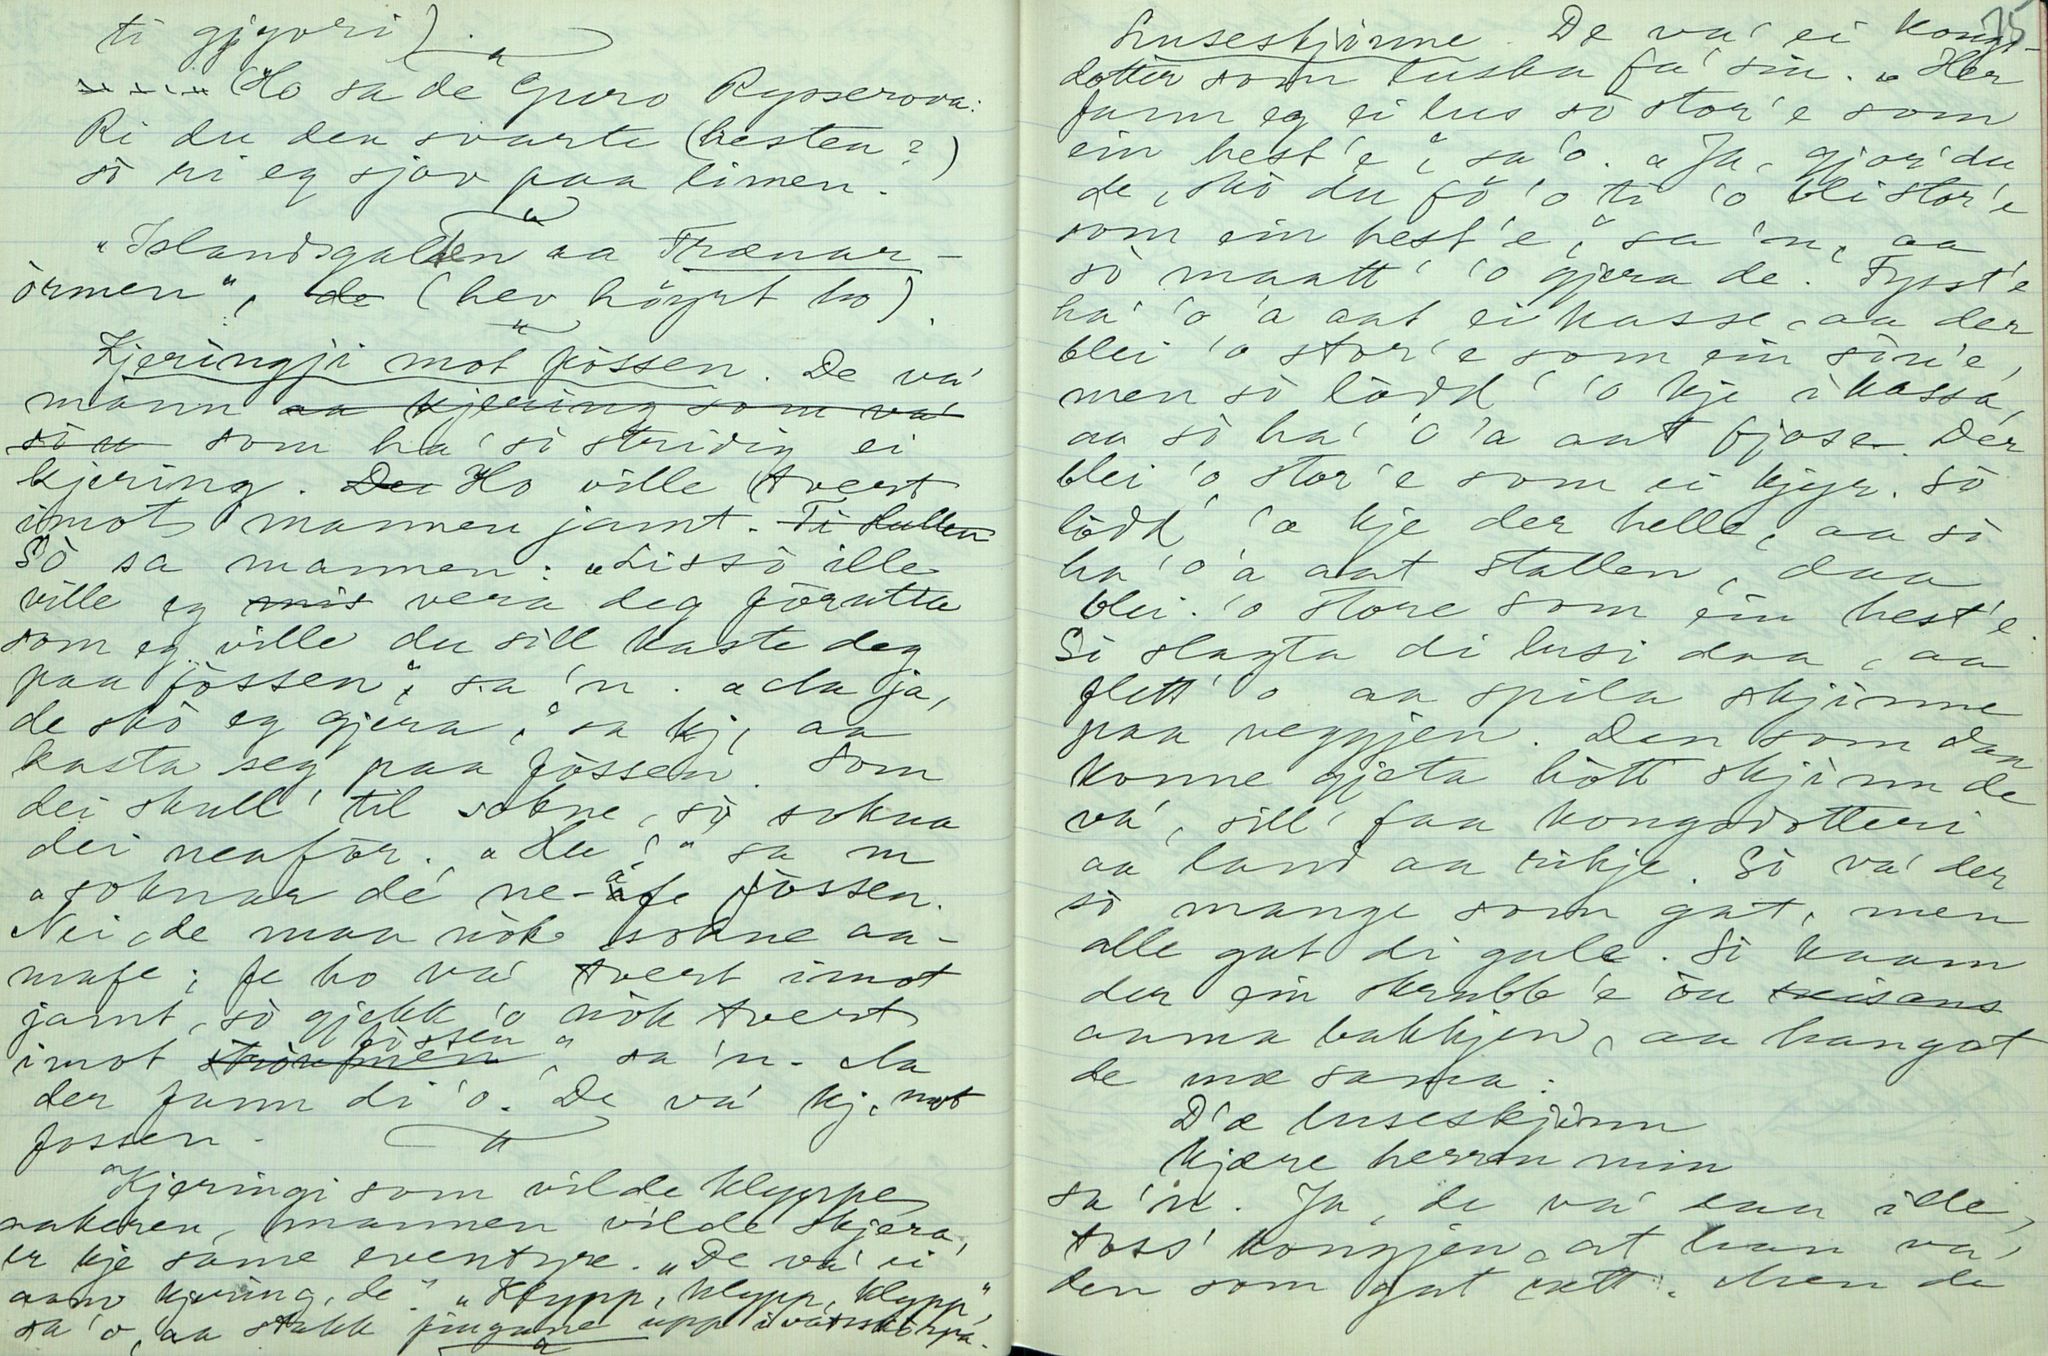 ti gjyvri).
Ho sa de Guro Rysserova:
Ri du den svarte (hesten?)
sò ri eg sjøv paa limen.
"Islandsgalten aa Trænar-
òrmen", de (hev høyrt ho).
Kjeringji mot fòssen. De va'
mann aa kjering som va'
sò u som ha' sò stridig ei
kjering. De Ho ville tvert
imot mannen jamt. Ti Sullen
Sò sa mannen: "Lissò ille
ville eg mis vera deg fòrutta
som eg ville du sill kaste deg
paa fòssen", sa 'n. "Ja ja,
de skò eg gjera," sa kj, aa
kasta seg paa fòssen. Som
dei skull' til sokne, sò sokna
dei neafòr. "Hu!" sa m
"soknar dé ne-afe fòssen.
Nei, de maa nòk sokne aa-
nafe; fe ho va' tvert imot
jamt, sò gjekk 'o nòk tvert
imot straumen fòssen", sa 'n. Ja
der fann di 'o. De va' kj. mot
fossen.
"Kjeringi som vilde klyppe
aakeren, mannen vilde skjera,
er kje same eventyre. "De va' ei
aann kjering, de". "Klypp, klypp, klypp",
sa 'o, aa stakk fingane upp i vasskòrpa.
75
Luseskjinne. De va' ei kongs-
dotter som luska fa' sin. "Her
fann eg ei lus sò stor'e som
ein hest'e", sa 'o. "Ja, gjor' du
de, skò du fò 'o ti 'o bli stor'e
som ein hest'e", sa 'n, aa
sò maatt' 'o gjera de. Fysst'e
ha' 'o 'a aat ei kasse, aa der
blei 'o stor'e som ein
men sò lòdd' 'o kje i kassa,
aa sò ha' 'o 'a aat fjose. Der
blei 'o stor'e som ei kjyr. Sò
lòdd' 'o kje der helle, aa sò
ha' 'o 'a aat stallen, daa
blei 'o store som ein hest'e.
Sò slagta di lusi daa, aa
flett 'o aa spila skjinne
paa veggjen. Den som daa
konne gjeta hòtt skjinn de
va', sill' faa kongsdotteri
aa land aa rikje. Sò va' der
sò mange som gat, men
alle gat di gale. Sò kaam
der ein skrubb'e òu
anna bakkjen, aa han gat
de mæ sama:
D'æ luseskjinn
kjære herren min
sa 'n. Ja, de va' ille,
toss' kongjen, at han va'
den som gat rett. Men de